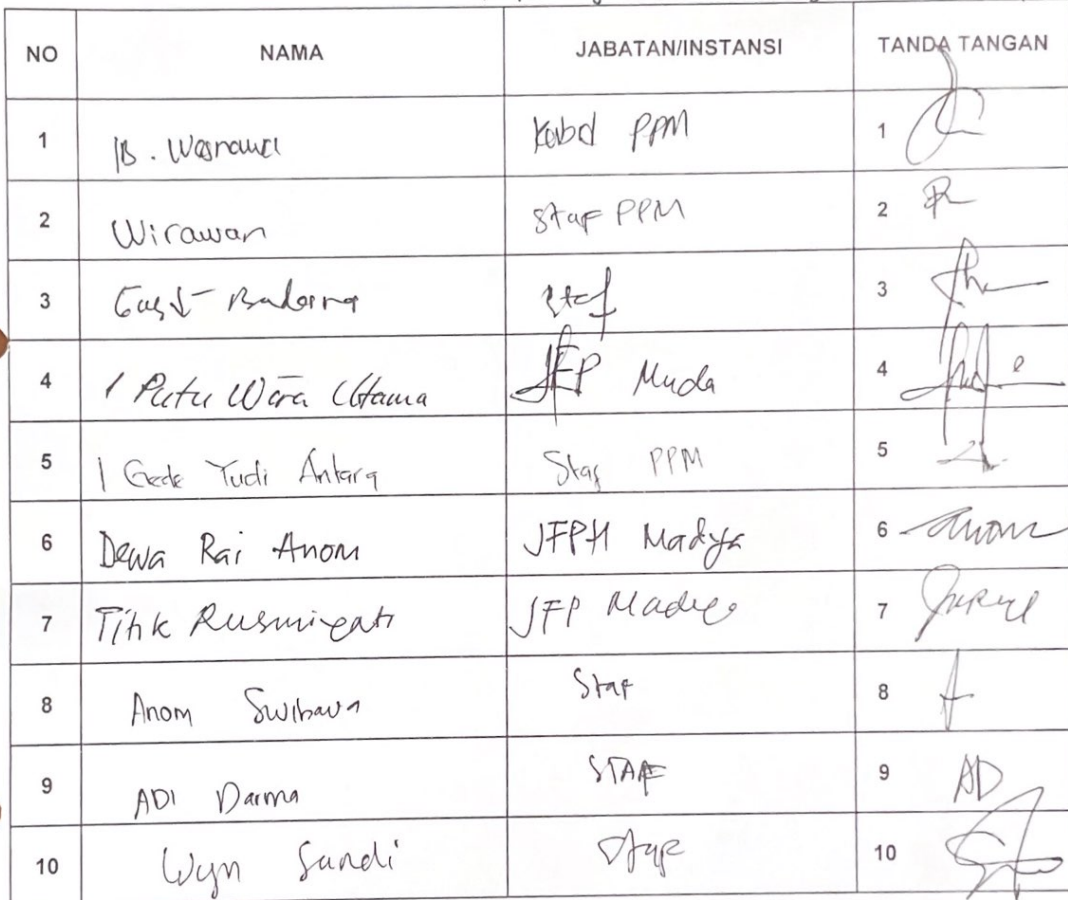 NO NAMA JABATAN/INSTANSI TANDA TANGAN
1 IB. Wesnawa Kabid PPM 1
2 Wirawan Staf PPM 2
3 Gust Staf 3
4 I Putu Wira Utama JFP Muda 4
5 I Gede Yudi Antara Staf PPM 5
6 Dewa Rai Anom JFPH Madya 6 anom
7 Titik Rusmiyati JFP Madya 7
8 Anom Swibawa Staf 8
9 ADI Darma STAF 9 AD
10 Wyn Sandi Staf 10